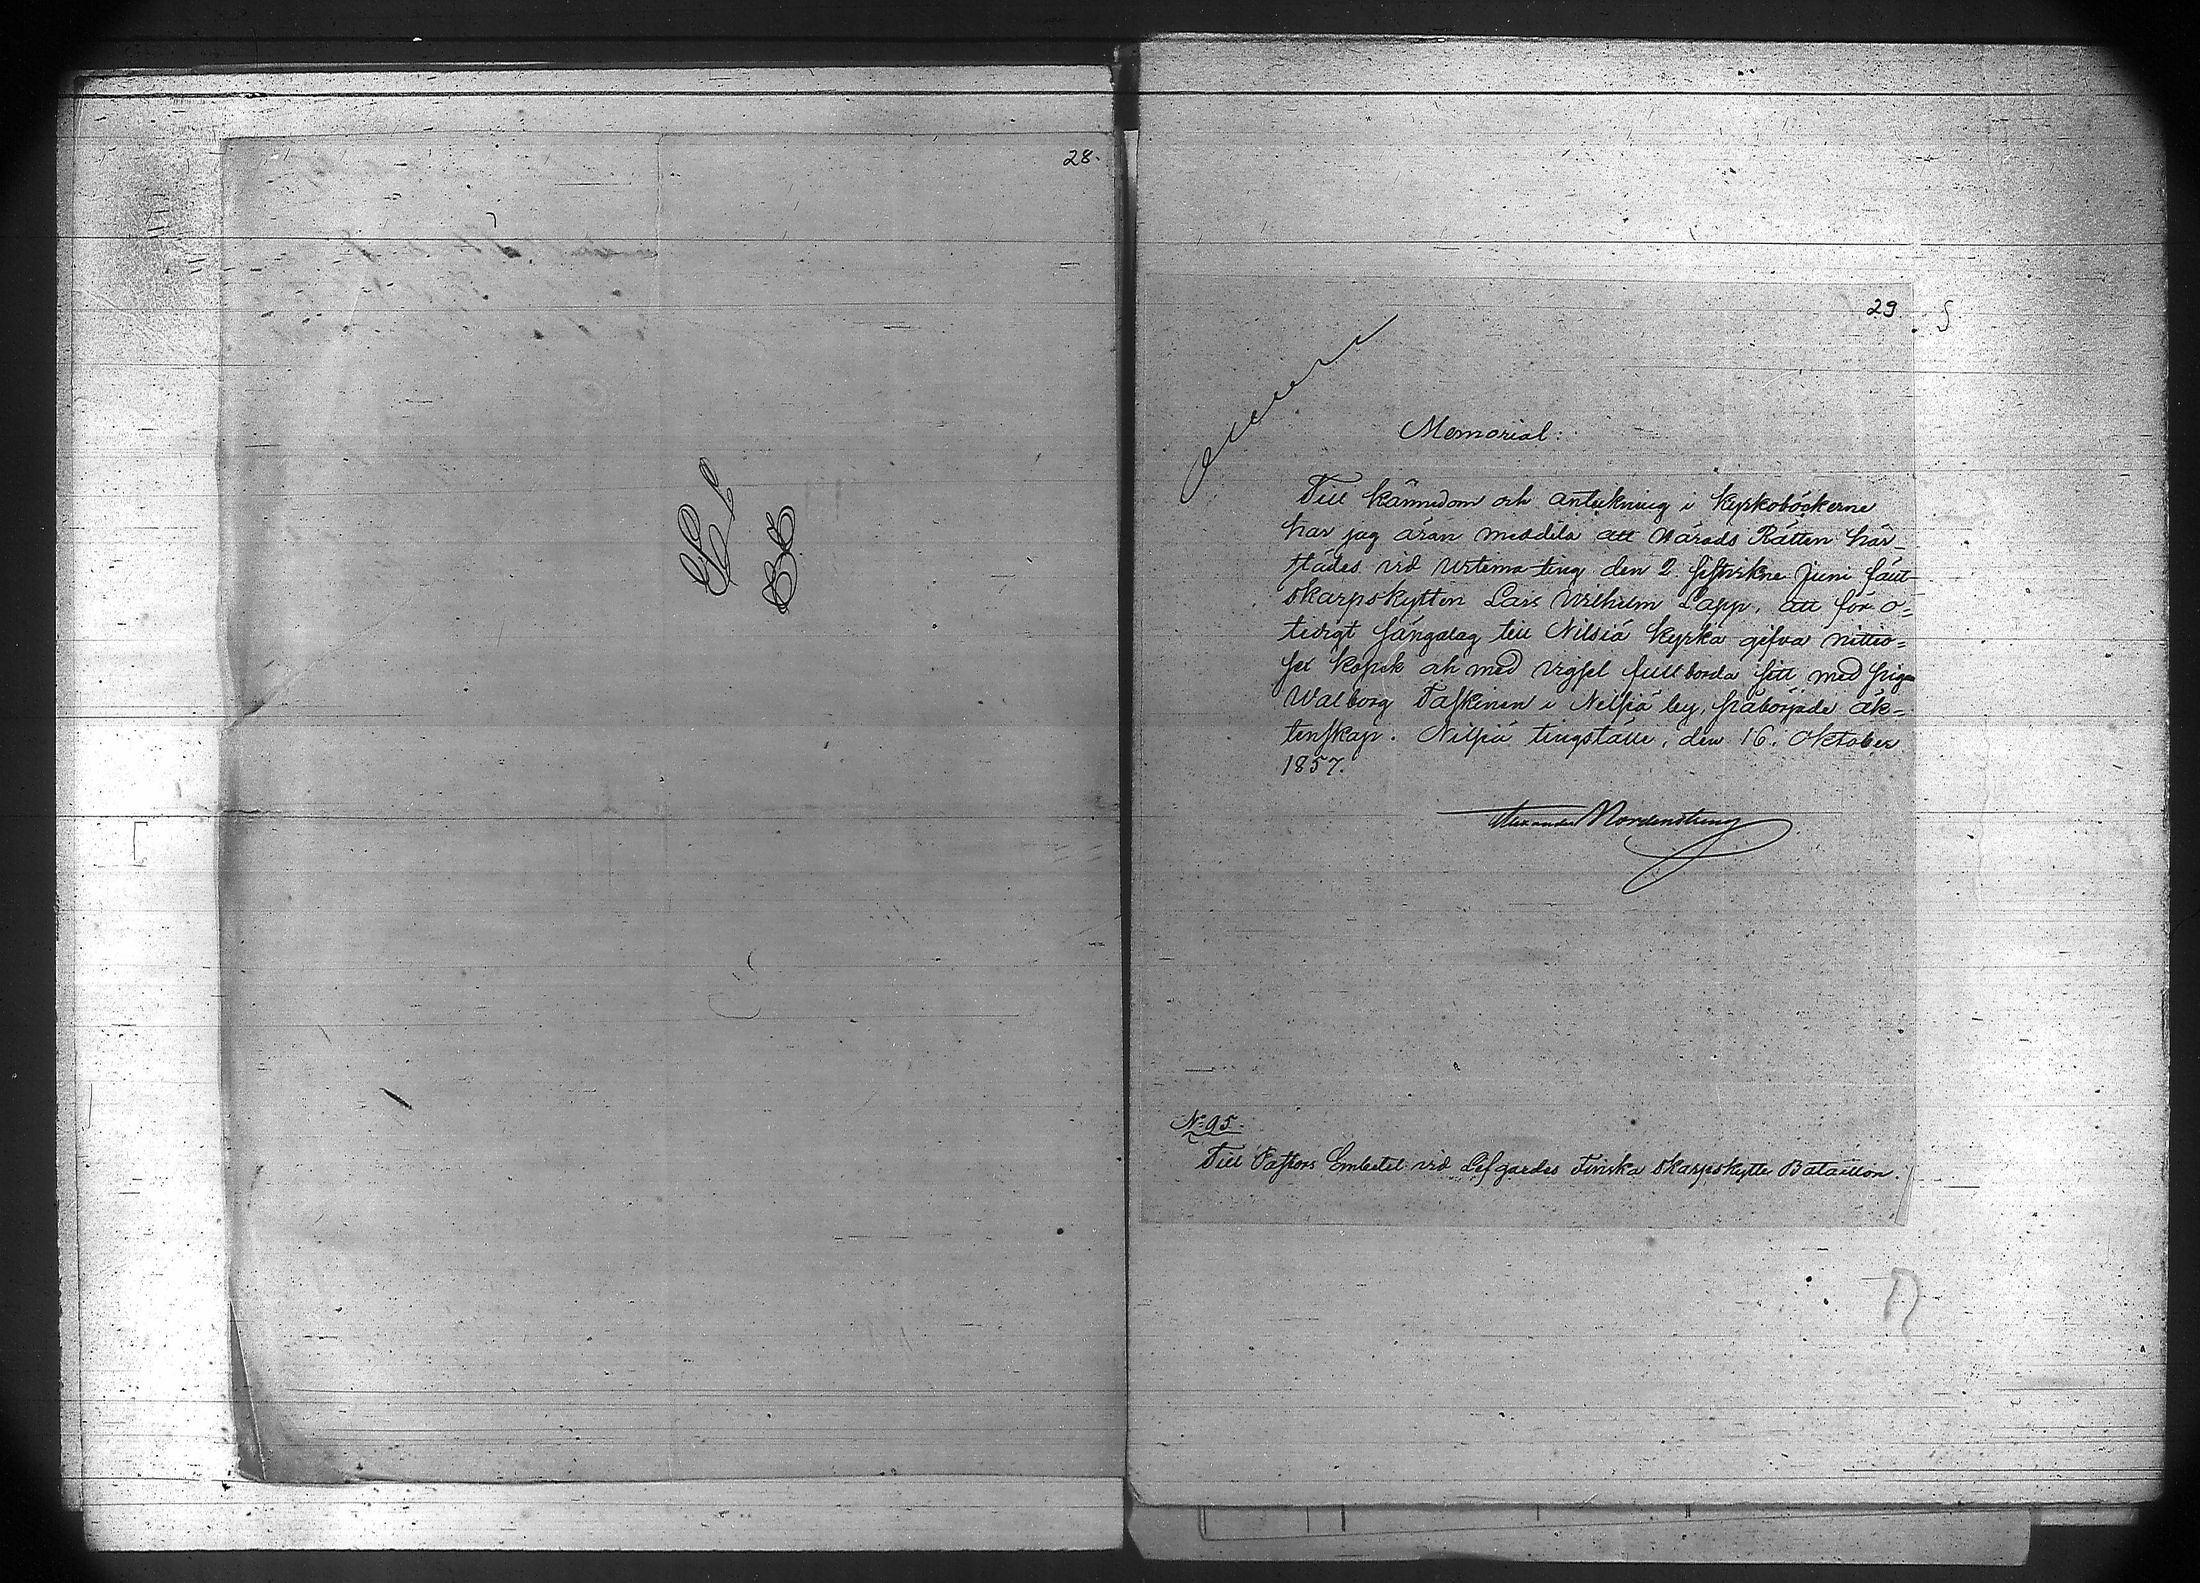 28.
29
Memorial:
Till kännedom och anteckning i kyrkoböckerne
har jag äran meddela att Härads Rätten här-
städes vid vårtima ting den 2 sistvikne Juni fällt
skarpskytten Lars Wilhelm Lapp, att för o-
tidigt sängalag till Nilsiä kyrka gifva nittio-
sex kopek och med vigsel fullborda sitt med pigan
Walborg Taskinen i Nilsiä by, påbörjade äk-
tenskap. Nilsiä tingställe, den 16. Oktober
1857.
Alexander Nordenstreng
No 95.
Till Pastors Embetet vid Lifgardes Finska Skarpskytte Bataillon.